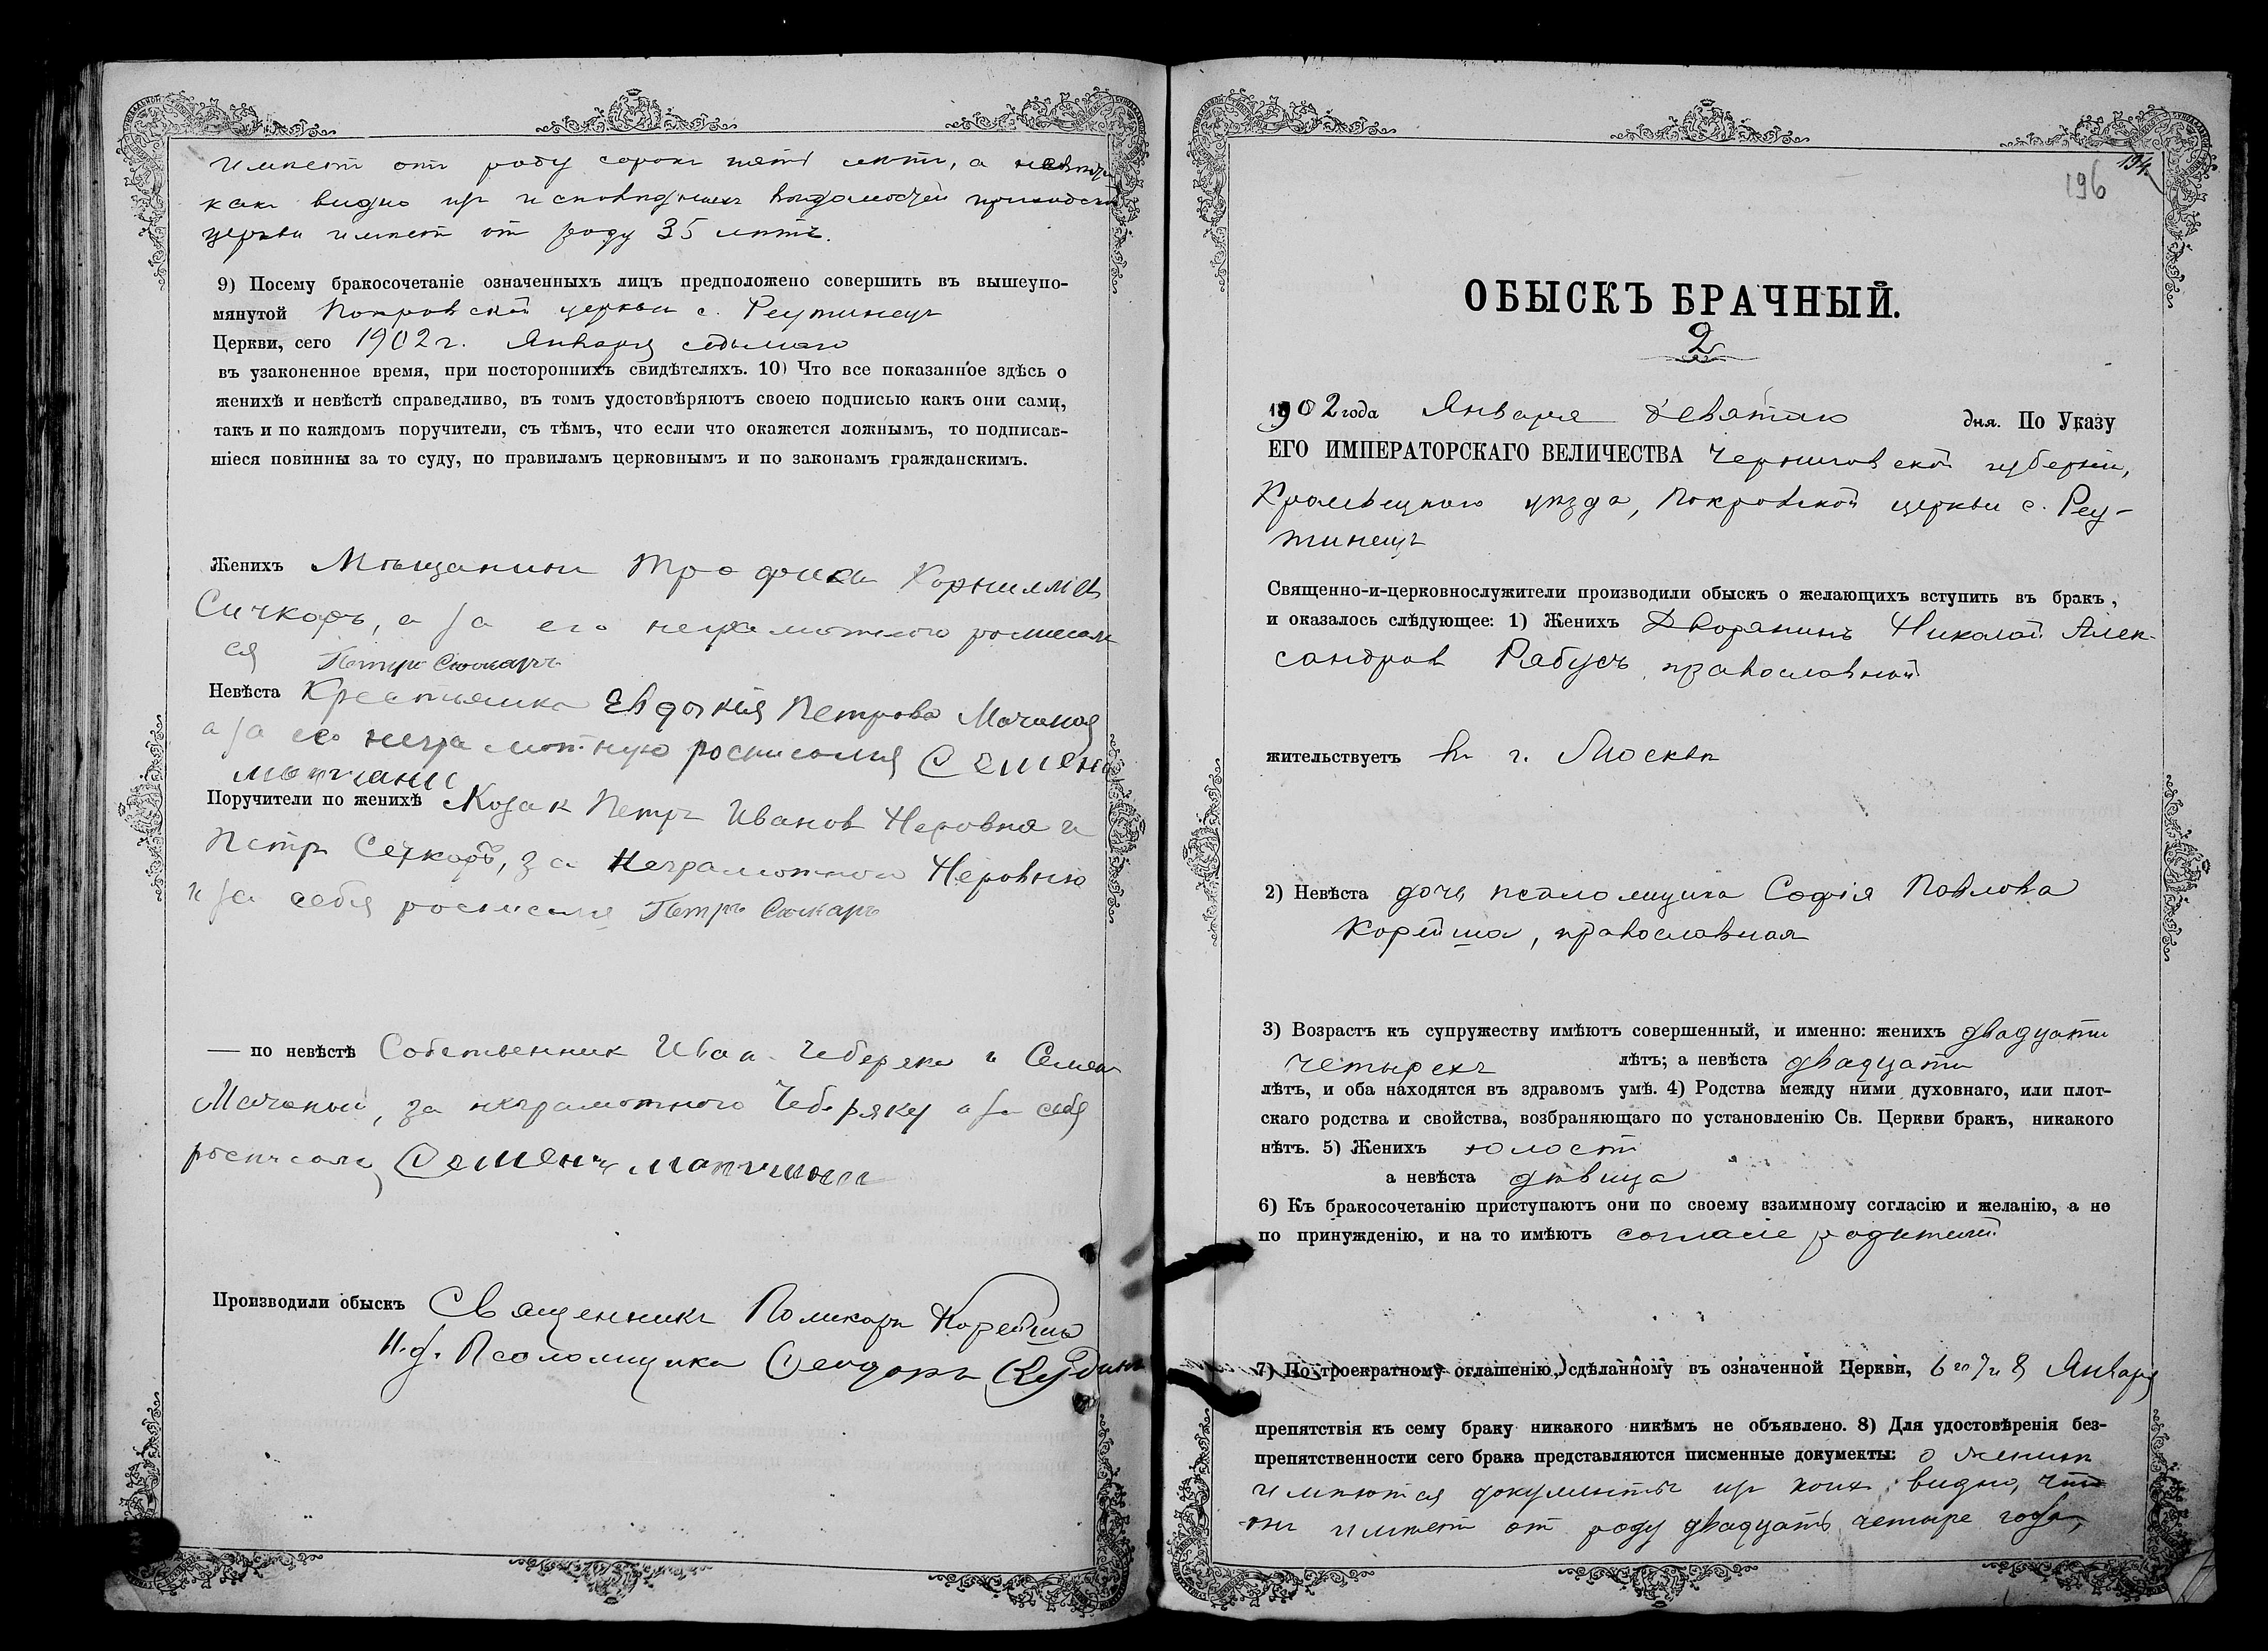 имѣетъ отъ роду сорокъ пять лѣтъ, а невѣста
какъ видно изъ исповѣдныхъ вѣдомостей приходской
церкви имѣетъ отъ роду 35 лѣтъ.
9) Посему бракосочетаніе означенныхъ лицъ предположено совершить въ вышеупо-
мянутой Покровской церкви с. Реутинецъ
Церкви, сего 1902 г. Января седьмаго
въ узаконенное время, при постороннихъ свидѣтеляхъ. 10) Что все показанное здѣсь о
женихѣ и невѣстѣ справедливо, въ томъ удостовѣряютъ своею подписью какъ они сами,
такъ и по каждомъ поручители, съ тѣмъ, что если что окажется ложнымъ, то подписав-
шіеся повинны за то суду, по правиламъ церковнымъ и по законамъ гражданскимъ.
Женихъ Мѣщанинъ Трофим Корнилів
Сичкаръ, а за его неграмотного росписал
ся Петръ Сичкаръ
Невѣста Крестьянка Евдокія Петрова
а за ее неграмотную росписался Семенъ
Поручители по женихѣ Козак Петръ Иванов Неровня и
Петръ Сечкаръ, за неграмотного Неровню
и за себя росписался Петръ Сичкаръ
— по невѣстѣ Собственник Иван Чеберяка и Семен
за неграмотного Чеберяку и за себя
росписался Семенъ
Производили обыскъ Священникъ Поликарп Корейша
И. д. Псаломщика Ѳеодоръ
196
194
ОБЫСКЪ БРАЧНЫЙ.
2
1902 года Января девятаго дня. По Указу
ЕГО ИМПЕРАТОРСКАГО ВЕЛИЧЕСТВА Черниговской губерніи,
Кролевецкаго уѣзда, Покровской церкви с. Реу-
тинецъ
Священно-и-церковнослужители производили обыскъ о желающихъ вступить въ бракъ,
и оказалось слѣдующее: 1) Женихъ Дворянинъ Николай Алек-
сандров Рабусъ, православный
жительствуетъ въ г. Москвѣ
2) Невѣста дочь псаломщика Софія Павлова
Корейша, православная
3) Возрастъ къ супружеству имѣютъ совершенный, и именно: женихъ двадцати
четырехъ лѣтъ; а невѣста двадцати
лѣтъ, и оба находятся въ здравомъ умѣ. 4) Родства между ними духовнаго, или плот-
скаго родства и свойства, возбраняющаго по установленію Св. Церкви бракъ, никакого
нѣтъ. 5) Женихъ холост
а невѣста дѣвица
6) Къ бракосочетанію приступаютъ они по своему взаимному согласію и желанію, а не
по принужденію, и на то имѣютъ согласіе родителей
7) По троекратному оглашенію, сдѣланному въ означенной Церкви, 6 го 7 и 8 Января
препятствія къ сему браку никакого никѣмъ не объявлено. 8) Для удостовѣренія без-
препятственности сего брака представляются писменные документы: о женихѣ
имѣются документы изъ коихъ видно, что
онъ имѣетъ от роду двадцать четыре года,